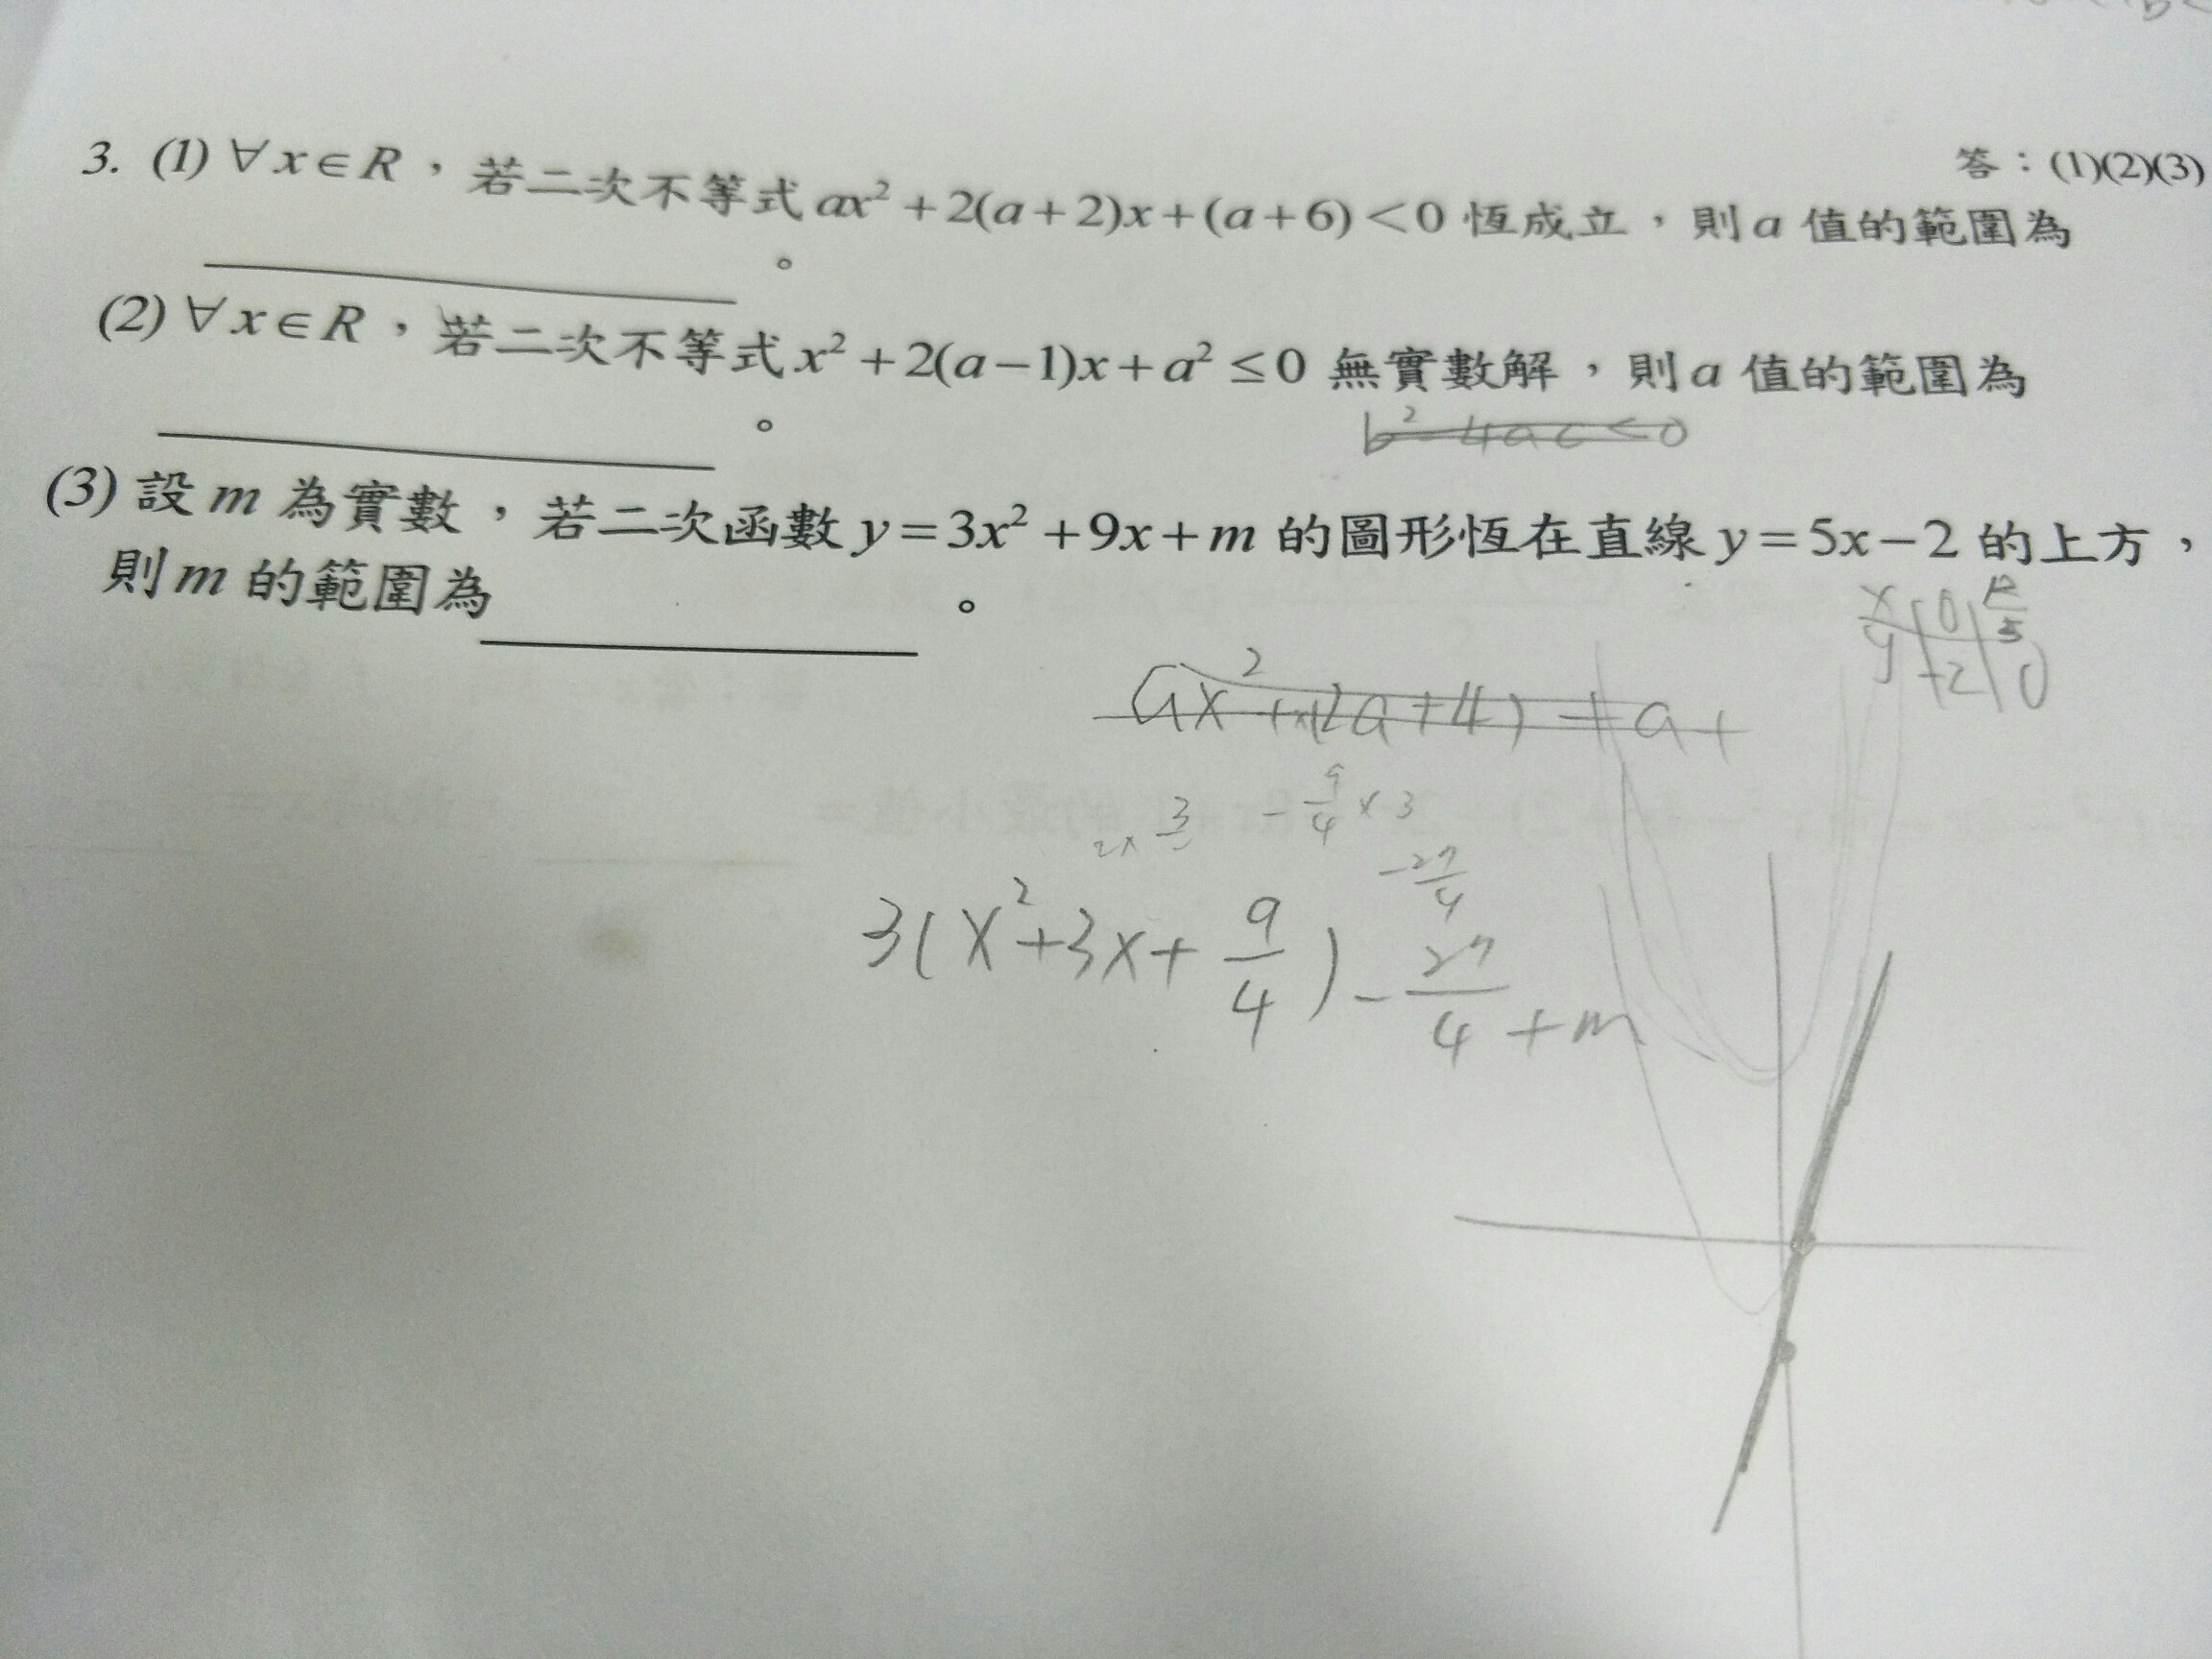 答：(1)(2)(3)
3. (1) ∀x∈R，若二次不等式 ax²+2(a+2)x+(a+6)<0 恆成立，則 a 值的範圍為
。
(2) ∀x∈R，若二次不等式 x²+2(a−1)x+a²≤0 無實數解，則 a 值的範圍為
b²-4ac<0
。
(3) 設 m 為實數，若二次函數 y=3x²+9x+m 的圖形恆在直線 y=5x−2 的上方，
則 m 的範圍為 。
x 0
y -2 0
ax²+x(2a+4)+a+
2x 3 -9/4 x 3
-27/4
3(x²+3x+9/4)-27/4+m